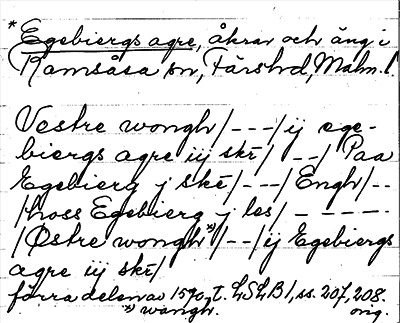 * Egebiergs agre, åkrar och äng i
Ramsåsa sn, Färshd, Malm. l.
Vestre wongh/---/ij ege-
biergs agre iij skē/ --/ Paa
Egebierg j skē/---/Engh/--
/hoss Egebierg j les/ -----
/Østre wongh*)/--/ij Egebiergs
agre iij skē/
förra delen av 1570-t. LSLB 1, ss. 207, 208.
*) wangh. orig.